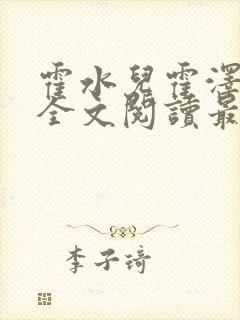 霍水兒霍澤
全文閱讀最
李子琦